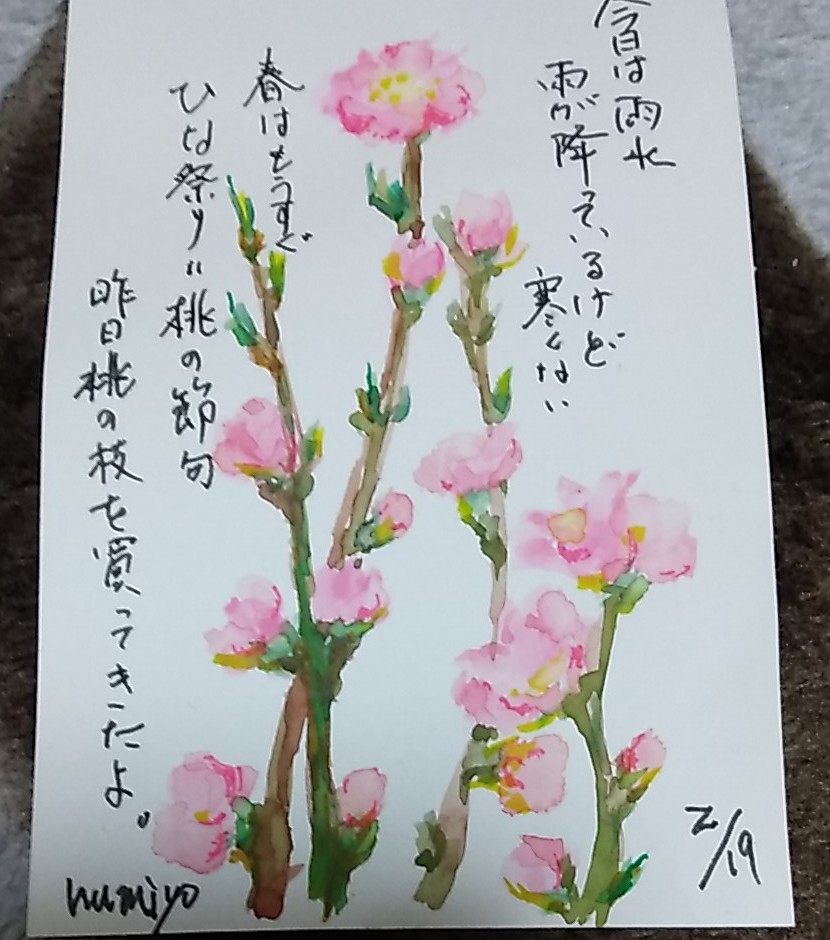 今日は雨水
雨が降っているけど
寒くない
春はもうすぐ
ひな祭り〃桃の節句
昨日桃の枝を買ってきたよ。
2/19
humiyo